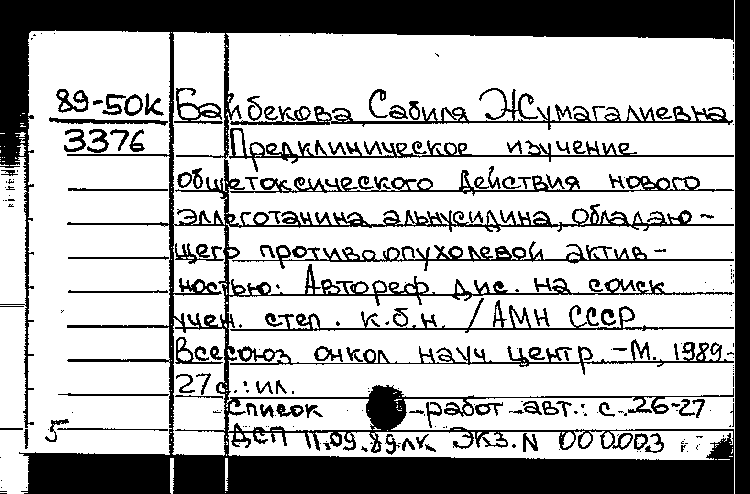 89-50К Байбекова Сабиля Жумагалиевна
3376 Предклиническое изучение
общетоксического действия нового
эллеготанина альнусидина, обладаю-
щего противоопухолевой актив-
ностью: Автореф. дис. на соиск
учен. степ. к.б.н. / АМН СССР,
Всесоюз. онкол. науч. центр. -М., 1989.-
27 с.: ил.
Список работ авт.: с. 26-27
5 ДСП 11.09.89 ЛК ЭКЗ. N 000003